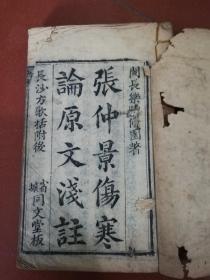 閩長樂陳修園著
張仲景傷寒
論原文淺註
長沙方歌括附後
同文堂板